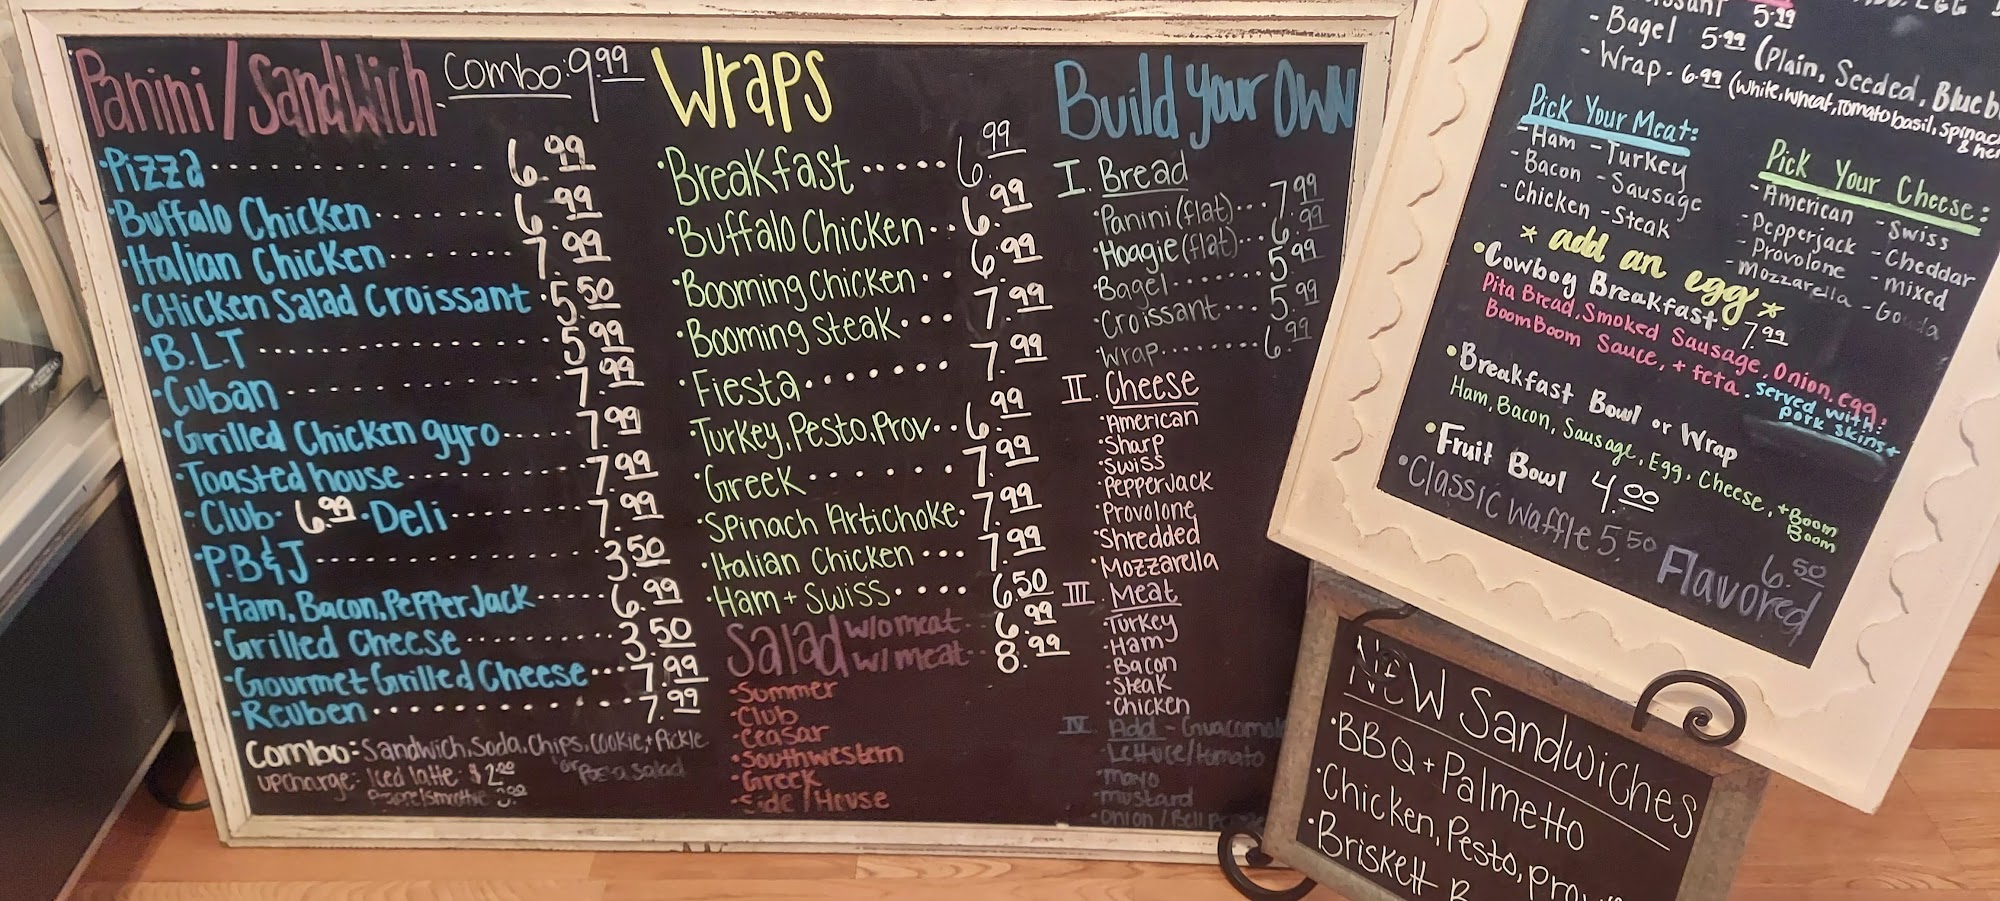 Panini/Sandwich Combo: 9.99
·Pizza.............. 6.99
·Buffalo Chicken....... 6.99
·Italian Chicken...... 7.99
·Chicken Salad Croissant. 5.50
·B.L.T .............. 5.99
·Cuban ............. 7.99
·Grilled Chicken gyro.... 7.99
·Toasted house......... 7.99
·Club· 6.99 ·Deli....... 7.99
·P.B&J .............. 3.50
·Ham, Bacon, Pepper Jack.... 6.99
·Grilled Cheese......... 3.50
·Gourmet Grilled Cheese... 7.99
·Reuben............. 7.99
Combo: Sandwich, Soda, Chips, Cookie, + Pickle
or Pasta Salad
upcharge: Iced latte $2.00
Wraps
·Breakfast..... 6.99
·Buffalo Chicken.. 6.99
·Booming Chicken.. 6.99
·Booming Steak... 7.99
·Fiesta....... 7.99
·Turkey, Pesto, Prov.. 6.99
·Greek....... 7.99
·Spinach Artichoke. 7.99
·Italian Chicken... 7.99
·Ham + Swiss.... 6.50
Salad w/o meat.. 6.99
w/ meat.. 8.99
·Summer
·Club
·Ceasar
·Southwestern
·Greek
·Side/House
Build Your Own
I. Bread
·Panini (flat)... 7.99
·Hoagie (flat)... 6.99
·Bagel....... 5.99
·Croissant... 5.99
·Wrap........ 6.99
II. Cheese
·American
·Sharp
·Swiss
·Pepperjack
·Provolone
·Shredded
·Mozzarella
III. Meat
·Turkey
·Ham
·Bacon
·Steak
·Chicken
IV Add - Guacamol
·Lettuce/tomato
·mayo
·mustard
·onion/Bell
5.99
- Bagel 5.99 (Plain, Seeded, Blueb
- Wrap · 6.99 (white, wheat, Tomato basil, spinac
Pick Your Meat:
- Ham - Turkey
- Bacon - Sausage
- Chicken - Steak
Pick Your Cheese:
- American - Swiss
- Pepperjack - Cheddar
- Provolone - mixed
- Mozzarella - Gouda
* add an egg *
·Cowboy Breakfast· 7.99
Pita Bread, Smoked Sausage, Onion, egg,
BoomBoom Sauce, + feta. served with:
pork skins+
·Breakfast Bowl or Wrap
Ham, Bacon, Sausage, Egg, Cheese, + Boom
Boom
·Fruit Bowl 4.00
·Classic Waffle 5.50 Flavored 6.50
NEW Sandwiches
·BBQ + Palmetto
·Chicken, Pesto, prov
·Briskett